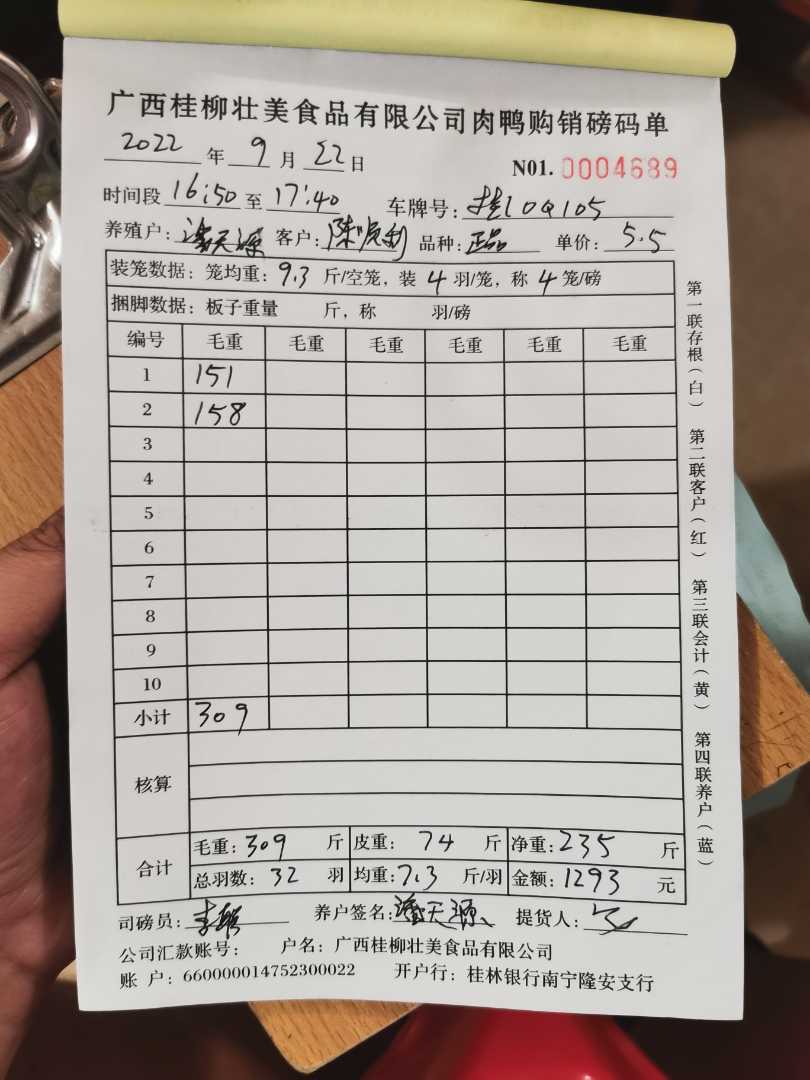 广西桂柳壮美食品有限公司肉鸭购销磅码单
2022 年 9 月 22 日 N01. 0004689
时间段 16:50 至 17:40 车牌号: 桂 0Q105
养殖户: 潘天源 客户: 陈 利 品种: 正品 单价: 5.5
装笼数据: 笼均重: 9.3 斤/空笼, 装 4 羽/笼, 称 4 笼/磅
捆脚数据: 板子重量 斤, 称 羽/磅
编号 毛重 毛重 毛重 毛重 毛重 毛重
1 151
2 158
3
4
5
6
7
8
9
10
小计 309
核算
合计 毛重: 309 斤 皮重: 74 斤 净重: 235 斤
总羽数: 32 羽 均重: 7.3 斤/羽 金额: 1293 元
司磅员: 养户签名: 潘天源 提货人:
公司汇款账号: 户名: 广西桂柳壮美食品有限公司
账 户: 660000014752300022 开户行: 桂林银行南宁隆安支行
第一联存根(白) 第二联客户(红) 第三联会计(黄) 第四联养户(蓝)